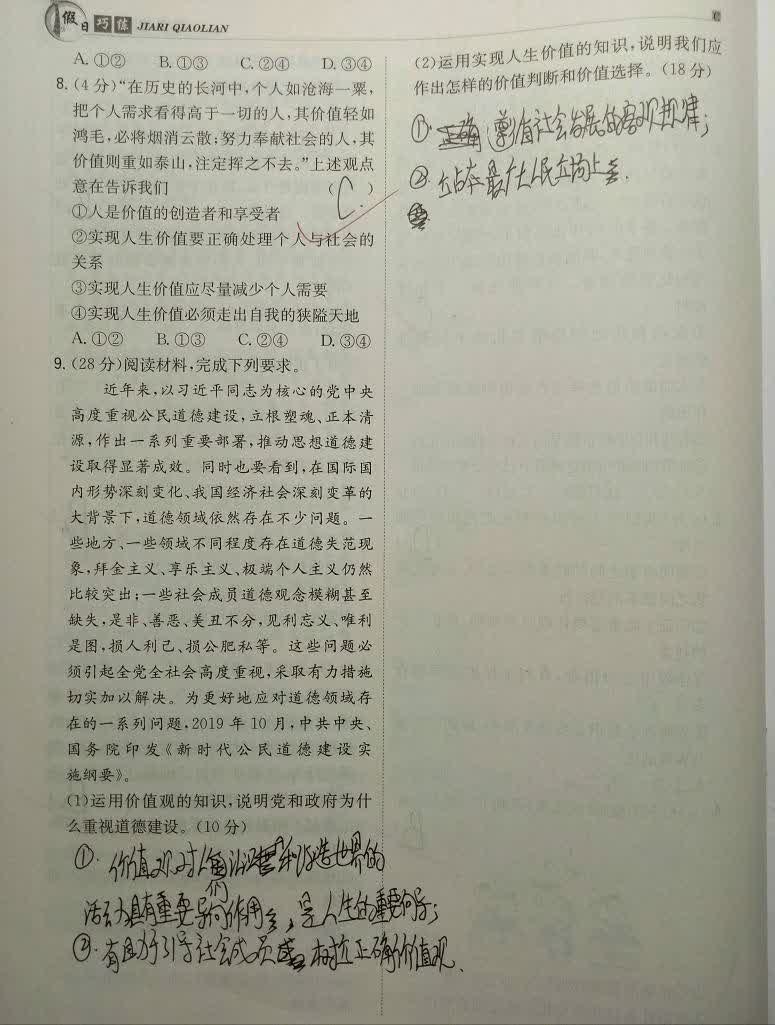 假日巧练 JIARI QIAOLIAN
A. ①② B. ①③ C. ②④ D. ③④
8. (4 分)“在历史的长河中,个人如沧海一粟,
把个人需求看得高于一切的人,其价值轻如
鸿毛,必将烟消云散;努力奉献社会的人,其
价值则重如泰山,注定挥之不去。”上述观点
意在告诉我们 ( C. )
①人是价值的创造者和享受者
②实现人生价值要正确处理个人与社会的
关系
③实现人生价值应尽量减少个人需要
④实现人生价值必须走出自我的狭隘天地
A. ①② B. ①③ C. ②④ D. ③④
9. (28 分)阅读材料,完成下列要求。
近年来,以习近平同志为核心的党中央
高度重视公民道德建设,立根塑魂、正本清
源,作出一系列重要部署,推动思想道德建
设取得显著成效。同时也要看到,在国际国
内形势深刻变化、我国经济社会深刻变革的
大背景下,道德领域依然存在不少问题。一
些地方、一些领域不同程度存在道德失范现
象,拜金主义、享乐主义、极端个人主义仍然
比较突出;一些社会成员道德观念模糊甚至
缺失,是非、善恶、美丑不分,见利忘义、唯利
是图,损人利己、损公肥私等。这些问题必
须引起全党全社会高度重视,采取有力措施
切实加以解决。为更好地应对道德领域存
在的一系列问题,2019 年 10 月,中共中央、
国务院印发《新时代公民道德建设实
施纲要》。
(1)运用价值观的知识,说明党和政府为什
么重视道德建设。(10 分)
①. 价值观对人们认识世界和改造世界的
活动具有重要导向作用,是人生的重要向导;
②. 有助于引导社会成员树立正确价值观.
(2)运用实现人生价值的知识,说明我们应
作出怎样的价值判断和价值选择。(18 分)
①. 遵循社会发展的客观规律;
②. 站在最广大人民立场上.